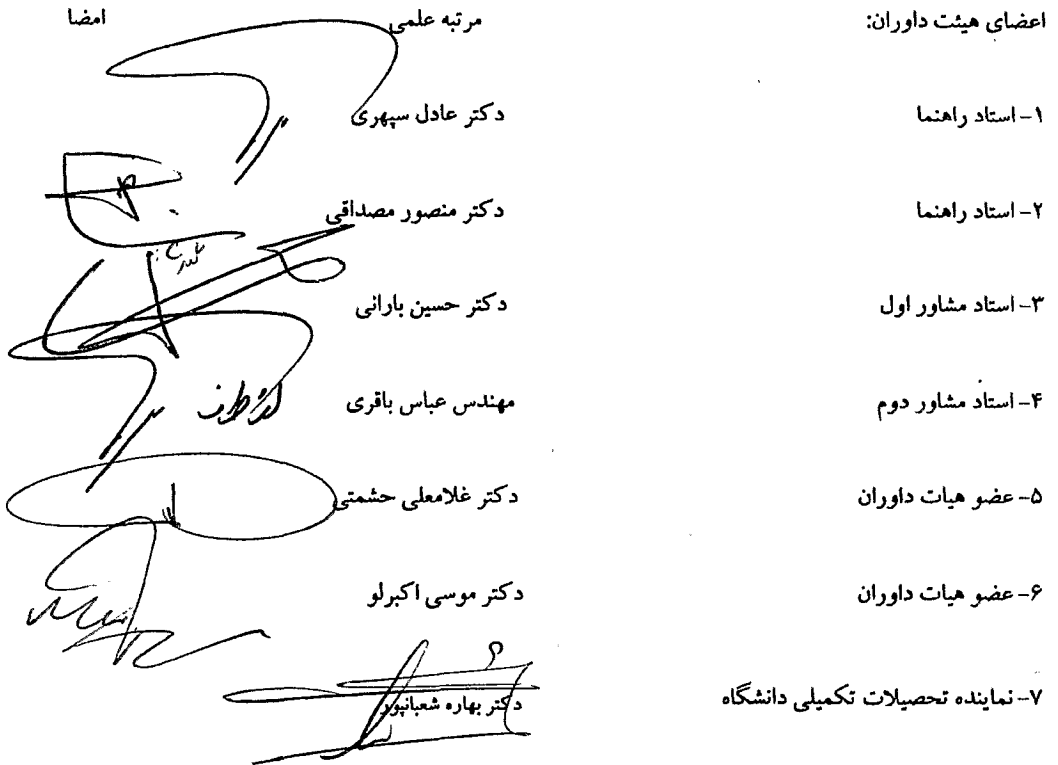 اعضای هیئت داوران: مرتبه علمی امضا
۱- استاد راهنما دکتر عادل سپهری
۲- استاد راهنما دکتر منصور مصداقی
۳- استاد مشاور اول دکتر حسین بارانی
۴- استاد مشاور دوم مهندس عباس باقری
۵- عضو هیات داوران دکتر غلامعلی حشمتی
۶- عضو هیات داوران دکتر موسی اکبرلو
۷- نماینده تحصیلات تکمیلی دانشگاه دکتر بهاره شعبانپور